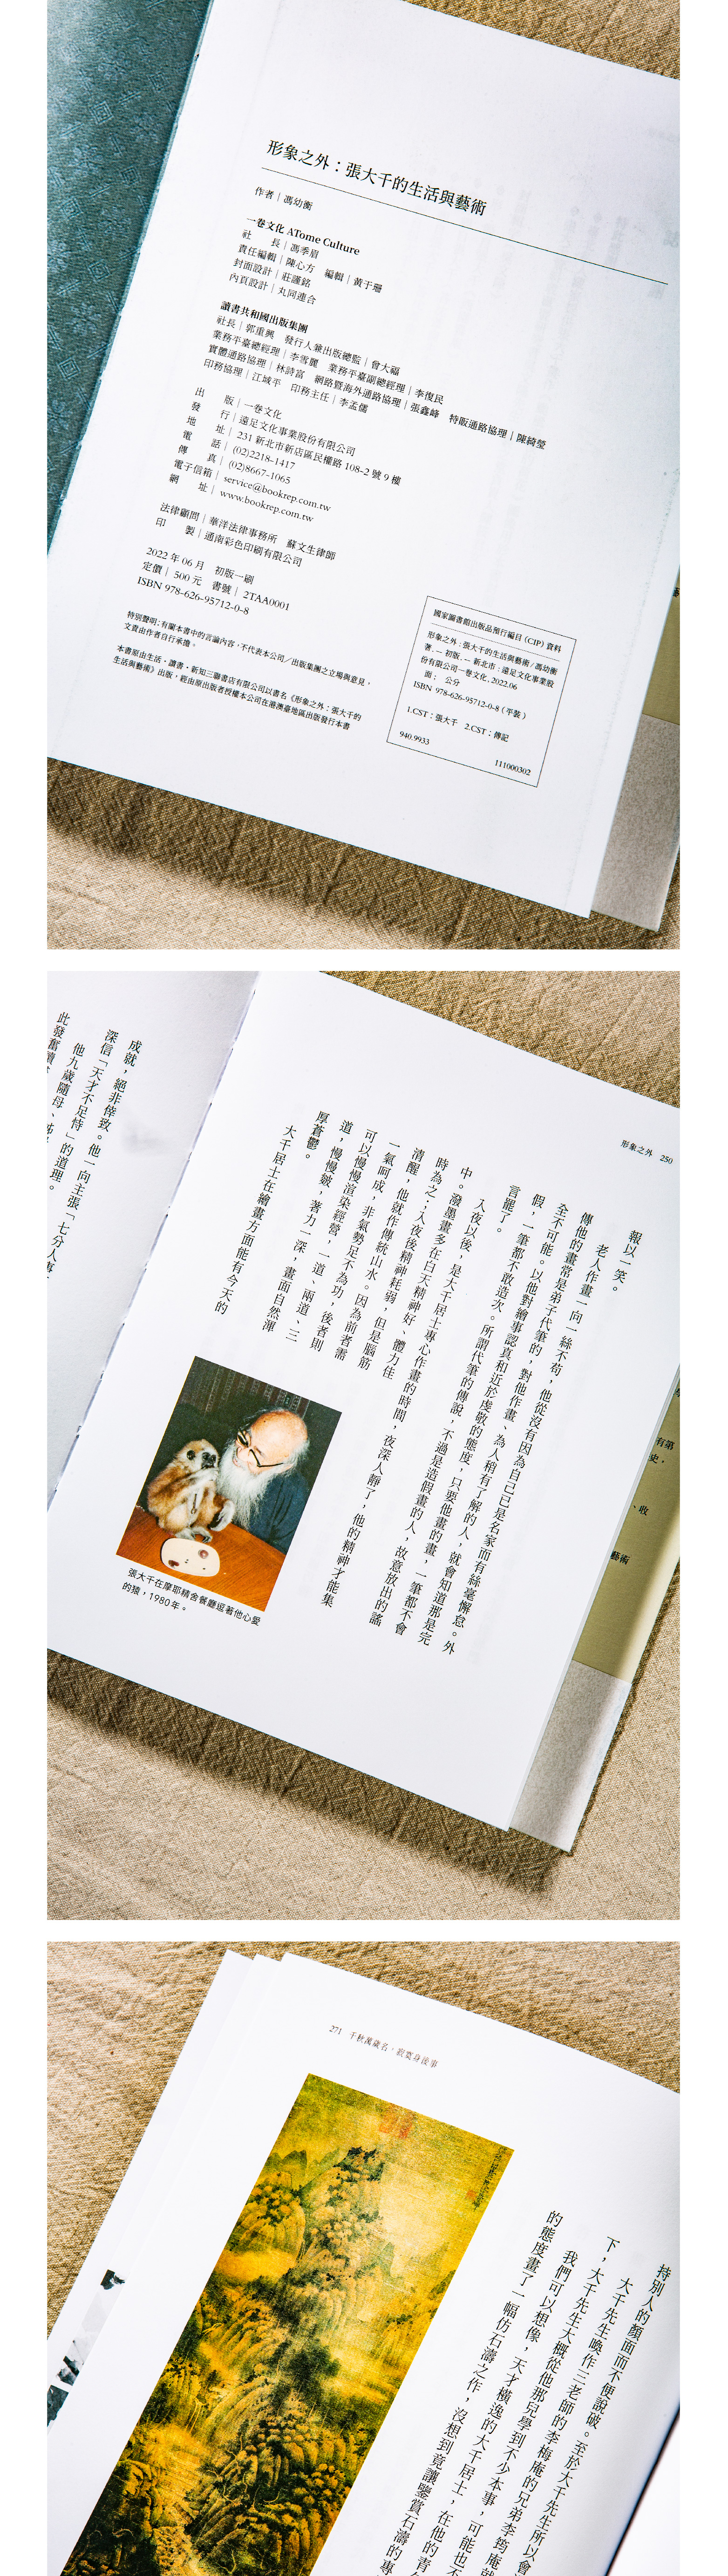 形象之外：張大千的生活與藝術
作者｜馮幼衡
一卷文化 ATome Culture
社　　長｜馮季眉
責任編輯｜陳心方　編輯｜黃于珊
封面設計｜莊謹銘
內頁設計｜丸同連合
讀書共和國出版集團
社長｜郭重興　發行人兼出版總監｜曾大福
業務平臺總經理｜李雪麗　業務平臺副總經理｜李復民
實體通路協理｜林詩富　網路暨海外通路協理｜張鑫峰　特販通路協理｜陳綺瑩
印務協理｜江域平　印務主任｜李孟儒
出　　版｜一卷文化
發　　行｜遠足文化事業股份有限公司
地　　址｜231 新北市新店區民權路 108-2 號 9 樓
電　　話｜(02)2218-1417
傳　　真｜(02)8667-1065
電子信箱｜service@bookrep.com.tw
網　　址｜www.bookrep.com.tw
法律顧問｜華洋法律事務所　蘇文生律師
印　　製｜通南彩色印刷有限公司
2022 年 06 月　初版一刷
定價｜500 元　書號｜2TAA0001
ISBN 978-626-95712-0-8
特別聲明：有關本書中的言論內容，不代表本公司／出版集團之立場與意見，
文責由作者自行承擔。
本書原由生活・讀書・新知三聯書店有限公司以書名《形象之外：張大千的
生活與藝術》出版，經由原出版者授權本公司在港澳臺地區出版發行本書
國家圖書館出版品預行編目（CIP）資料
形象之外：張大千的生活與藝術／馮幼衡
著. -- 初版. -- 新北市：遠足文化事業股
份有限公司一卷文化, 2022.06
面；　公分
ISBN 978-626-95712-0-8（平裝）
1.CST：張大千　2.CST：傳記
940.9933
111000302
形象之外　250
報以一笑。
老人作畫一向一絲不苟，他從沒有因為自己已是名家而有絲毫懈怠。外
傳他的畫常是弟子代筆的，對他作畫、為人稍有了解的人，就會知道那是完
全不可能。以他對繪事認真和近於虔敬的態度，只要他畫的畫，一筆都不會
假，一筆都不敢造次。所謂代筆的傳說，不過是造假畫的人，故意放出的謠
言罷了。
入夜以後，是大千居士專心作畫的時間，夜深人靜了，他的精神才能集
中。潑墨畫多在白天精神好、體力佳
時為之；入夜後精神耗弱，但是腦筋
清醒，他就作傳統山水。因為前者需
一氣呵成，非氣勢足不為功，後者則
可以慢慢渲染經營，一道、兩道、三
道，慢慢皴，著力一深，畫面自然渾
厚蒼鬱。
大千居士在繪畫方面能有今天的
張大千在摩耶精舍餐廳逗著他心愛
的猿，1980年。
成就，絕非倖致。他一向主張「七分人事
深信「天才不足恃」的道理。
他九歲隨母、
此發奮
有第
史，
、收
藝術
271　千秋萬歲名，寂寞身後事
持別人的顏面而不便說破。至於大千先生所以會
大千先生喚作三老師的李梅庵的兄弟李筠庵
下，大千先生大概從他那兒學到不少本事，可能也不
我們可以想像，天才橫逸的大千居士，在他的青
的態度畫了一幅仿石濤之作，沒想到竟讓鑒賞石濤的專